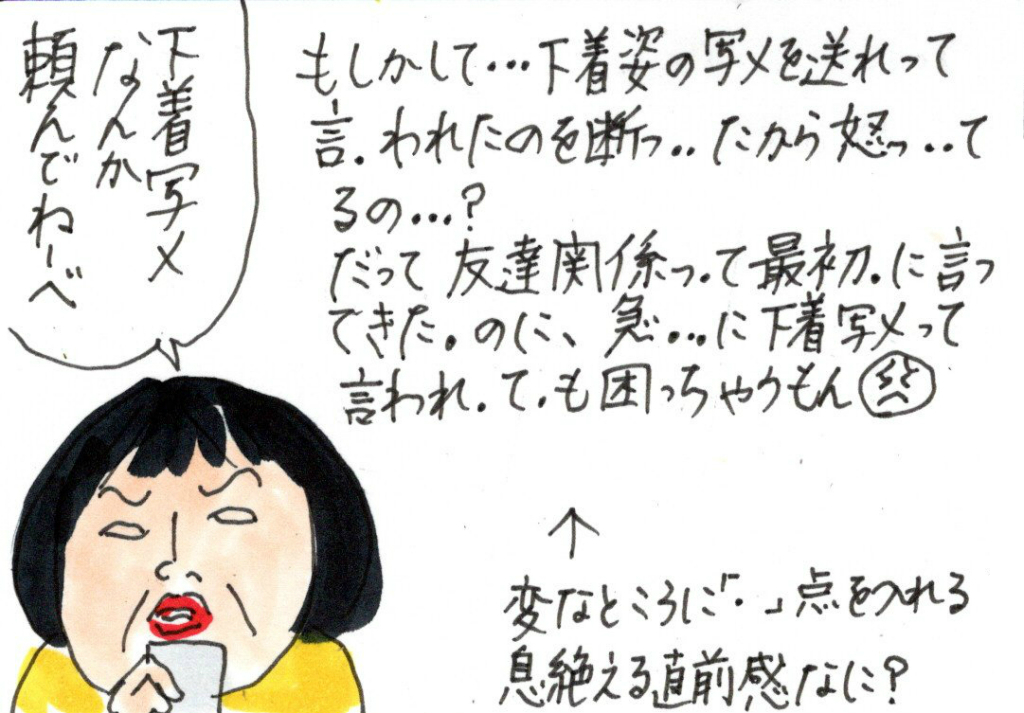 もしかして…下着姿の写メを送れって
言.われたのを断っ..たから怒っ..て
るの…?
だって友達関係っ.て最初.に言っ
てきた.のに、急…に下着写メって
言われ.て.も困っちゃうもん
下着写メ
なんか
頼んでねーべ
↑
変なところに「・」点を入れる
息絶える直前感なに?